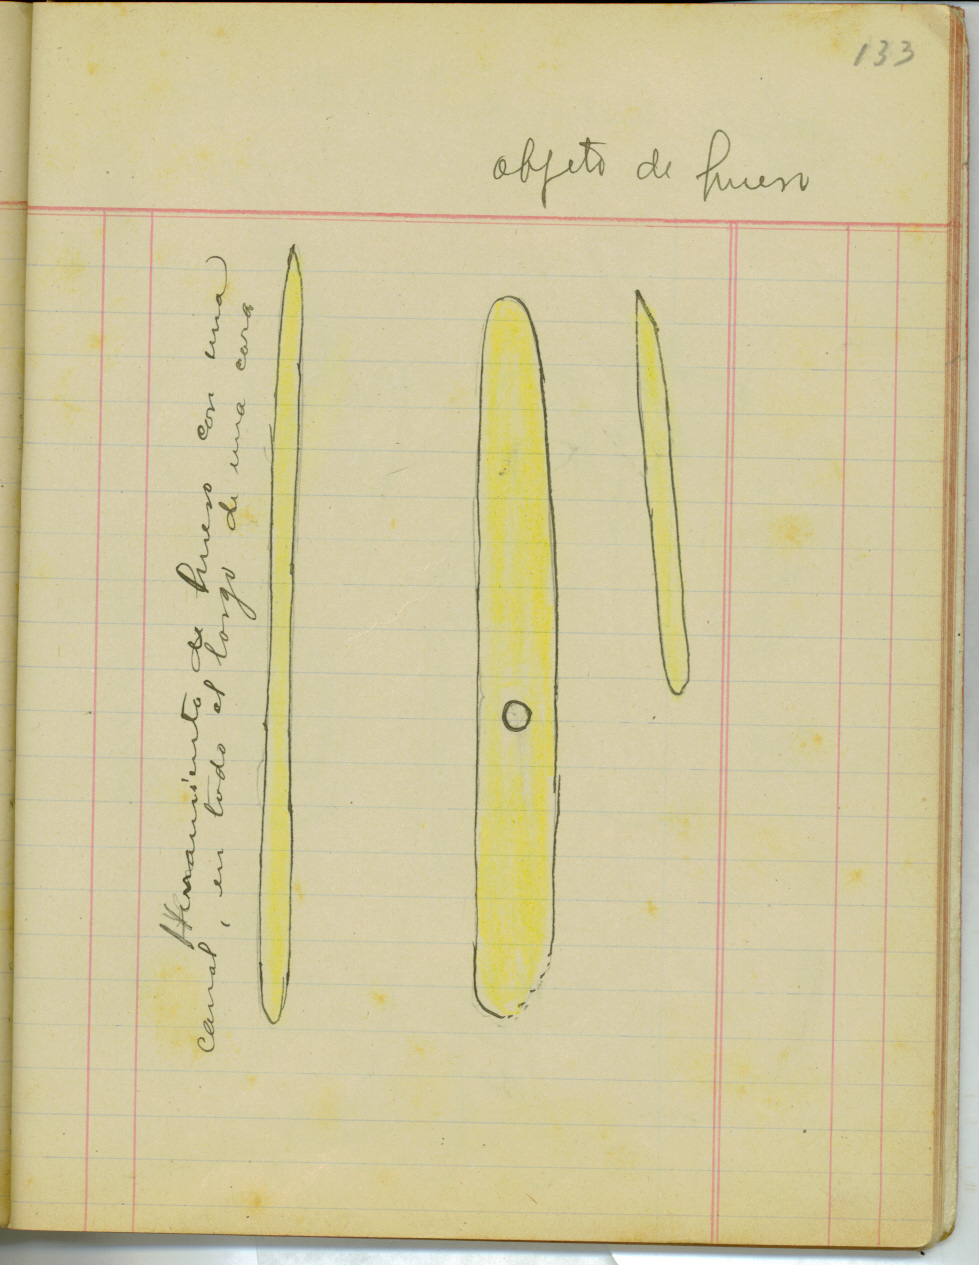 133
objeto de hueso
Herramienta de hueso con una
canal, en todo el largo de una cara